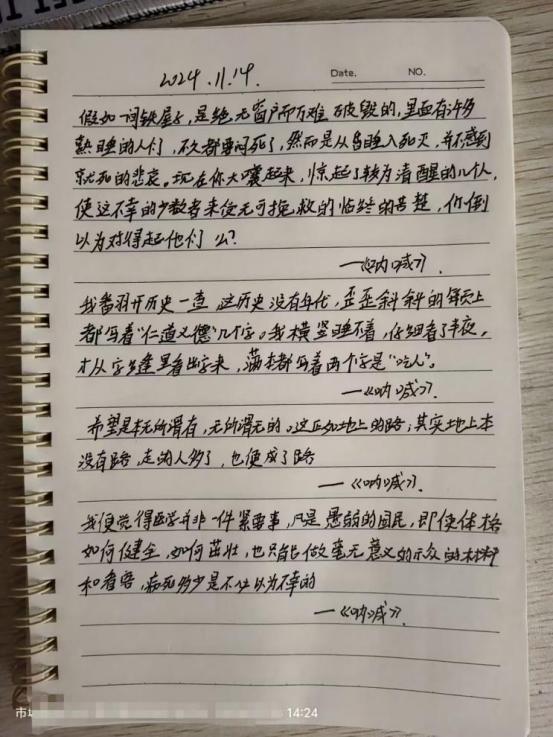 2024.11.14.
Date.
NO.
假如一间铁屋子，是绝无窗户而万难破毁的，里面有许多
熟睡的人们，不久都要闷死了，然而是从昏睡入死灭，并不感到
就死的悲哀。现在你大嚷起来，惊起了较为清醒的几个人，
使这不幸的少数者来受无可挽救的临终的苦楚，你倒
以为对得起他们么？
—《呐喊》.
我翻开历史一查，这历史没有年代，歪歪斜斜的每页上
都写着“仁道义德”几个字。我横竖睡不着，仔细看了半夜，
才从字缝里看出字来，满本都写着两个字是“吃人”。
—《呐喊》.
希望是本无所谓有，无所谓无的。这正如地上的路；其实地上本
没有路，走的人多了，也便成了路
—《呐喊》.
我便觉得医学并非一件紧要事，凡是愚弱的国民，即使体格
如何健全，如何茁壮，也只能做毫无意义的示众的材料
和看客，病死多少是不必以为不幸的
—《呐喊》.
市
14:24